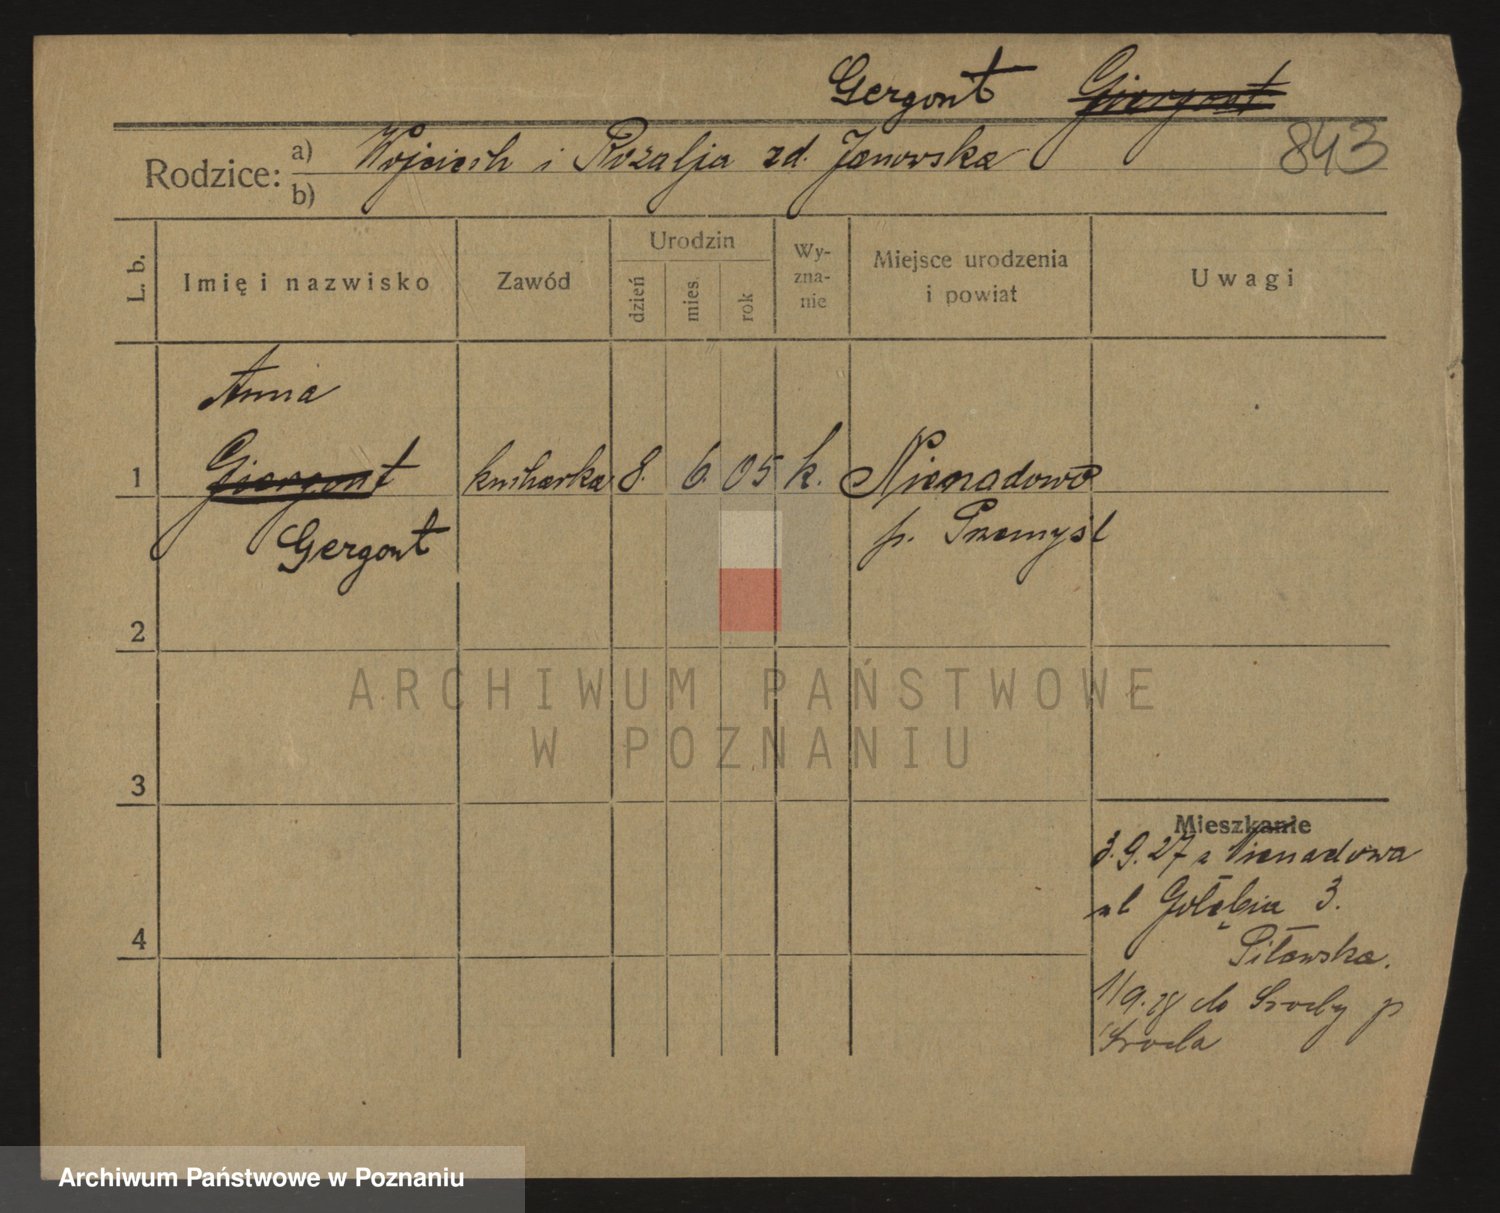 Gergont Giergont
843
Rodzice: a) Wojciech i Rozalja zd. Janowska
b)
L. b. Imię i nazwisko Zawód Urodzin dzień mies. rok Wy-zna-nie Miejsce urodzenia i powiat Uwagi
Anna
1 Giergont kucharka 8. 6. 05 k. Nienadowo
Gergont p. Przemyśl
2
ARCHIWUM PAŃSTWOWE
W POZNANIU
3
Mieszkanie
3.9.27 z Nienadowa
ul Gołębia 3.
Piławska.
1/9.28 do Środy p
Środa
4
Archiwum Państwowe w Poznaniu